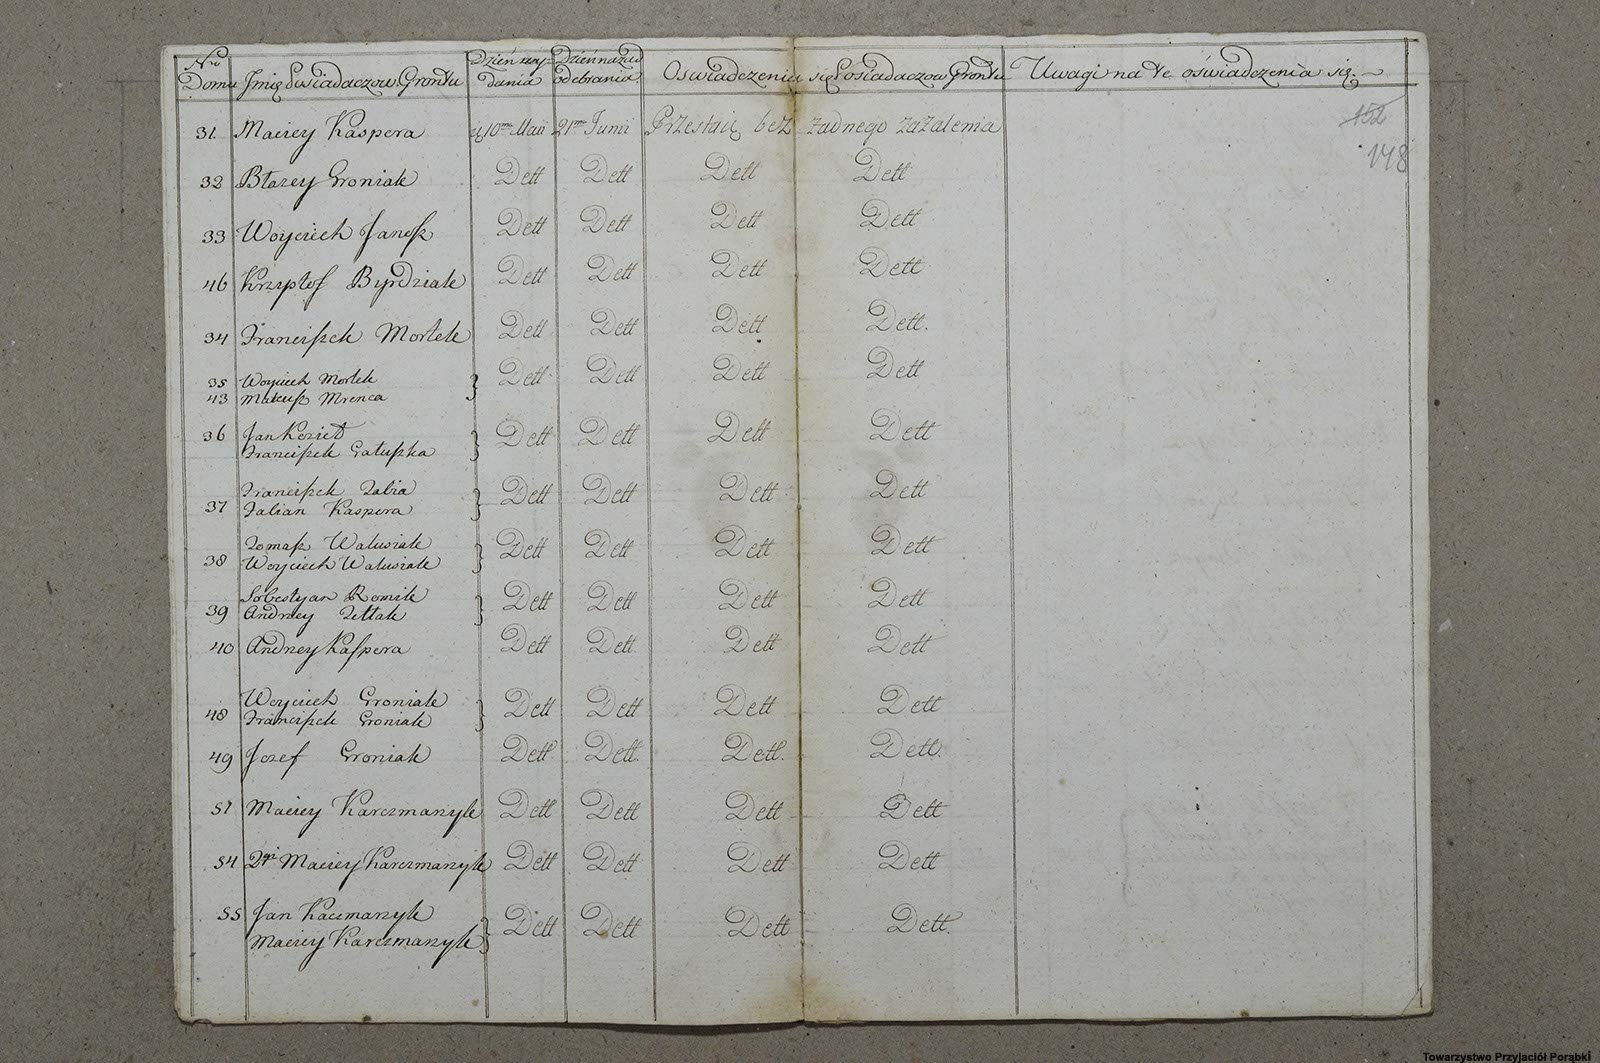 Nro Domu Jmię Posiadaczow Grontu Dzień wydania Dzień nazad odebrania Oswiadczenia się Posiadaczow Grontu Uwagi na te oświadczenia się.
152
148
31 Maciey Kaspera 10ma Maii 21ma Junii Przestaię bez żadnego zażalenia
32 Błazey Groniak Dett Dett Dett Dett
33 Woyciech Janoszk Dett Dett Dett Dett
46 Krzysztof Byrdziak Dett Dett Dett Dett
34 Franciszek Mortek Dett Dett Dett Dett.
35 Woyciech Mortek } Dett Dett Dett Dett
43 Mateusz Mrenca
36 Jan Kozieł } Dett Dett Dett Dett
Franciszek Gałuszka
Franciszek Fabia } Dett Dett Dett Dett
37 Fabian Kaspera
Tomasz Walusiak } Dett Dett Dett Dett
38 Woyciech Walusiak
Sobestyan Romik } Dett Dett Dett Dett
39 Andrzey
40 Andrzey Kaspera Dett Dett Dett Dett
Woyciech Groniak } Dett Dett Dett Dett
48 Franciszek Groniak
49 Jozef Groniak Dett Dett. Dett. Dett.
51 Maciey Karczmarzyk Dett Dett Dett Dett
54 2gi Maciey Karczmarzyk Dett Dett Dett Dett
55 Jan Kaczmarzyk } Dett Dett Dett Dett.
Maciey Karczmarzyk
Towarzystwo Przyjaciół Porąbki